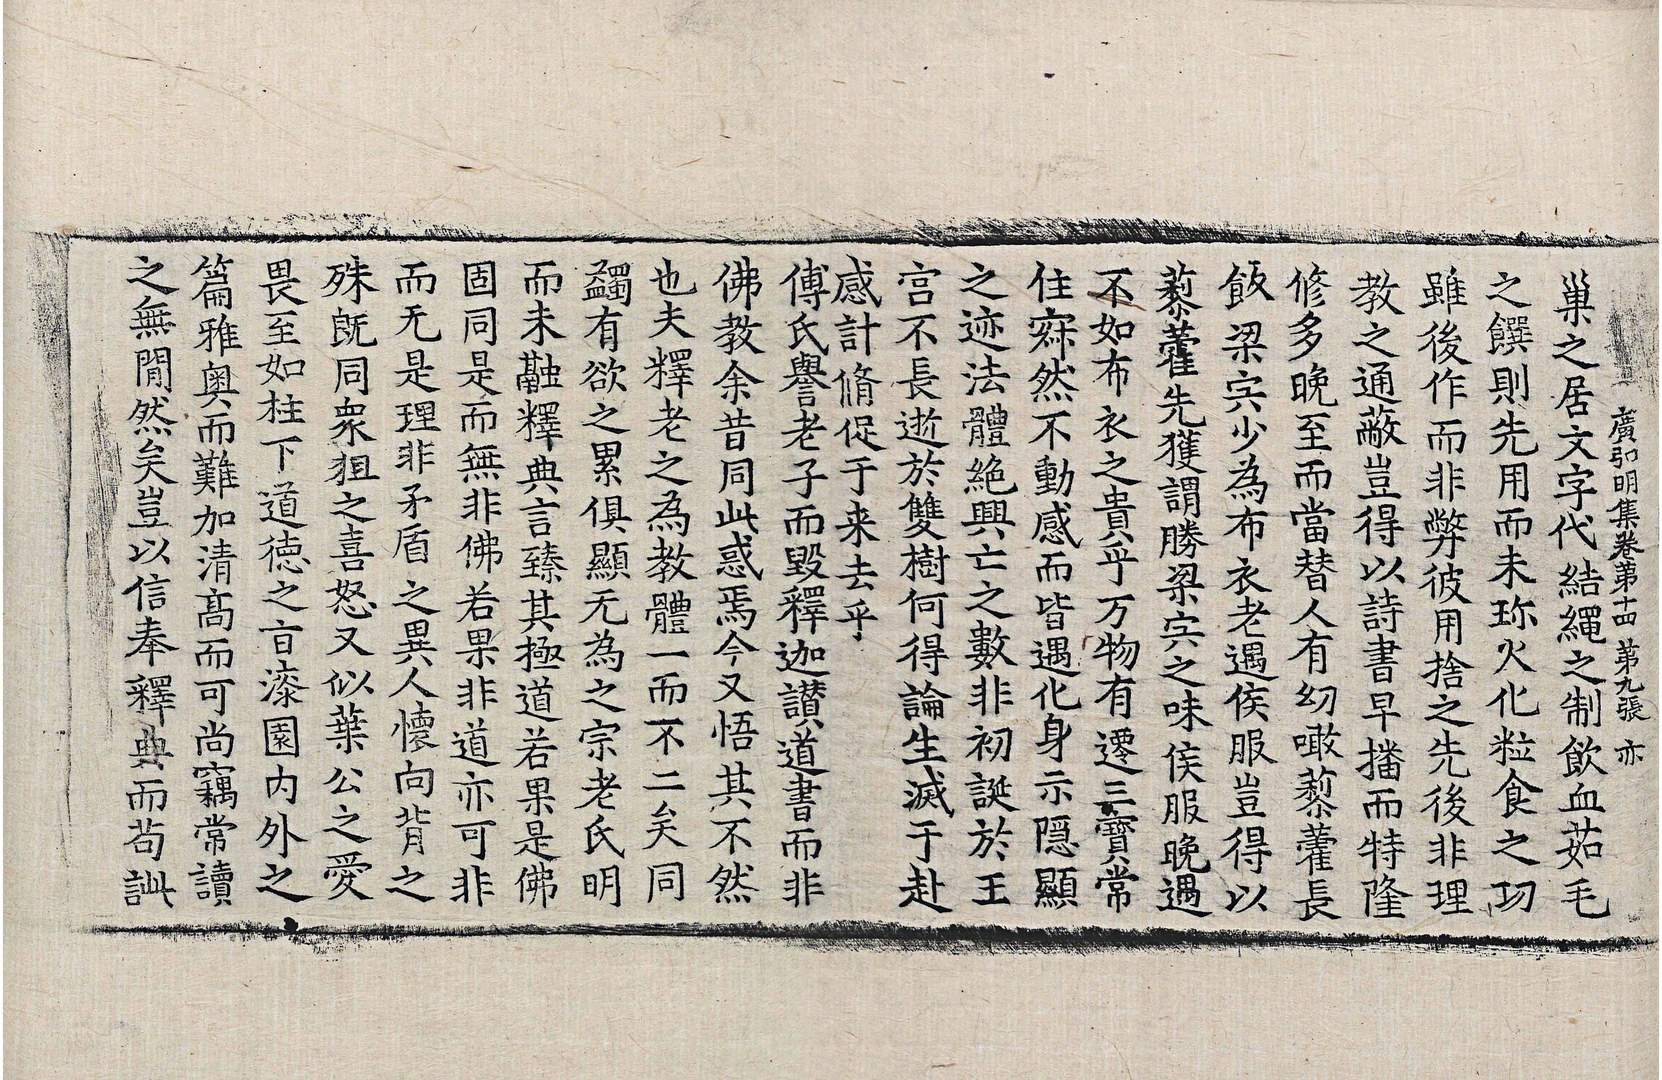 廣弘明集卷第十四 第九張 亦
巢之居文字代結繩之制飲血茹毛
之饌則先用而未珎火化粒食之功
雖後作而非弊彼用捨之先後非理
教之通蔽豈得以詩書早播而特隆
修多晚至而當替人有幼噉藜藿長
飯梁宍少為布衣老遇侯服豈得以
藜藿先獲謂勝梁宍之味侯服晚遇
不如布衣之貴乎万物有遷三寶常
住寂然不動感而皆遇化身示隱顯
之迹法體絶興亡之數非初誕於王
宮不長逝於雙樹何得論生滅于赴
感計脩促于来去乎
傅氏譽老子而毀釋迦讃道書而非
佛教余昔同此惑焉今又悟其不然
也夫釋老之為教體一而不二矣同
蠲有欲之累俱顯无為之宗老氏明
而未融釋典言臻其極道若果是佛
固同是而無非佛若果非道亦可非
而无是理非矛盾之異人懷向背之
殊既同衆狙之喜怒又似葉公之愛
畏至如柱下道德之旨漆園内外之
篇雅奥而難加清高而可尚竊常讀
之無間然矣豈以信奉釋典而苟訿